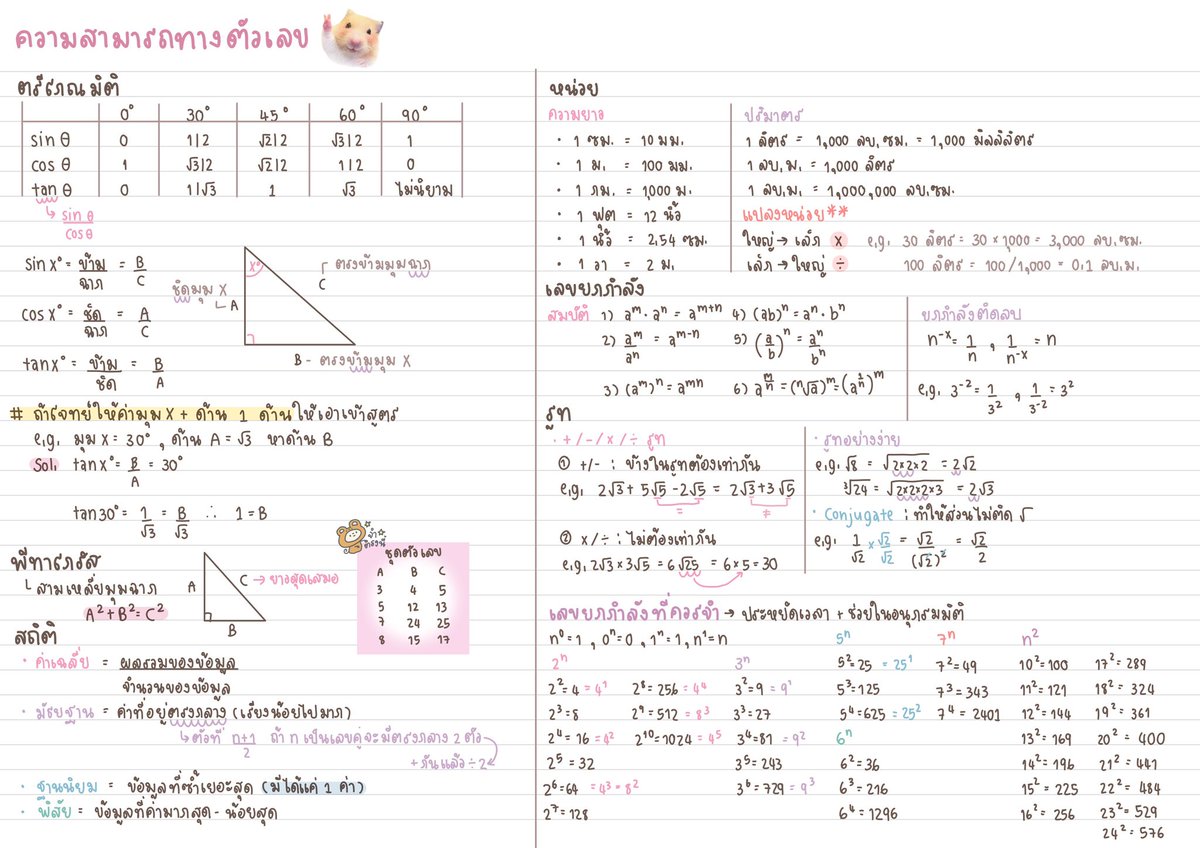 ความสามารถทางตัวเลข
ตรีโกณมิติ
0° 30° 45° 60° 90°
sin θ 0 1|2 √2|2 √3|2 1
cos θ 1 √3|2 √2|2 1|2 0
tan θ 0 1|√3 1 √3 ไม่นิยาม
↳ sin θ / cos θ
sin x° = ข้าม/ฉาก = B/C
cos x° = ชิด/ฉาก = A/C
tan x° = ข้าม/ชิด = B/A
x°
ตรงข้ามมุมฉาก
C
ชิดมุม X
A
B - ตรงข้ามมุม X
# ถ้าโจทย์ให้ค่ามุม X + ด้าน 1 ด้านให้เอาเข้าสูตร
e.g. มุม X = 30°, ด้าน A = √3 หาด้าน B
Sol. tan x° = B/A = 30°
tan 30° = 1/√3 = B/√3 ∴ 1 = B
พีทาโกรัส
└ สามเหลี่ยมมุมฉาก
A²+B²=C²
A
C → ยาวสุดเสมอ
B
จำตรงนี้
ชุดตัวเลข
A B C
3 4 5
5 12 13
7 24 25
8 15 17
สถิติ
· ค่าเฉลี่ย = ผลรวมของข้อมูล/จำนวนของข้อมูล
· มัธยฐาน = ค่าที่อยู่ตรงกลาง (เรียงน้อยไปมาก)
↳ ตัวที่ n+1/2 ถ้า n เป็นเลขคู่จะมีตรงกลาง 2 ตัว
+กันแล้ว÷2
· ฐานนิยม = ข้อมูลที่ซ้ำเยอะสุด (มีได้แค่ 1 ค่า)
· พิสัย = ข้อมูลที่ค่ามากสุด - น้อยสุด
หน่วย
ความยาว
· 1 ซม. = 10 มม.
· 1 ม. = 100 มม.
· 1 กม. = 1,000 ม.
· 1 ฟุต = 12 นิ้ว
· 1 นิ้ว = 2.54 ซม.
· 1 วา = 2 ม.
ปริมาตร
1 ลิตร = 1,000 ลบ.ซม. = 1,000 มิลลิลิตร
1 ลบ.ม. = 1,000 ลิตร
1 ลบ.ม. = 1,000,000 ลบ.ซม.
แปลงหน่วย**
ใหญ่→เล็ก × e.g. 30 ลิตร = 30 × 1,000 = 3,000 ลบ.ซม.
เล็ก→ใหญ่ ÷ 100 ลิตร = 100/1,000 = 0.1 ลบ.ม.
เลขยกกำลัง
สมบัติ 1) aᵐ·aⁿ = aᵐ⁺ⁿ 4) (ab)ⁿ = aⁿ·bⁿ
2) aᵐ/aⁿ = aᵐ⁻ⁿ 5) (a/b)ⁿ = aⁿ/bⁿ
3) (aᵐ)ⁿ = aᵐⁿ 6) a^(m/n) = (ⁿ√a)ᵐ = (a^(1/n))ᵐ
ยกกำลังติดลบ
n⁻ˣ = 1/n, 1/n⁻ˣ = n
e.g. 3⁻² = 1/3², 1/3⁻² = 3²
รูท
· +/-/×/÷ รูท
① +/- : ข้างในรูทต้องเท่ากัน
e.g. 2√3 + 5√5 - 2√5 = 2√3 + 3√5
= ≠
② ×/÷ : ไม่ต้องเท่ากัน
e.g. 2√3 × 3√5 = 6√25 = 6×5 = 30
· รูทอย่างง่าย
e.g. √8 = √2×2×2 = 2√2
³√24 = √2×2×2×3 = 2√3
· Conjugate : ทำให้ส่วนไม่ติด √
e.g. 1/√2 × √2/√2 = √2/(√2)² = √2/2
เลขยกกำลังที่ควรจำ → ประหยัดเวลา + ช่วยในอนุกรมมิติ
n⁰=1, 0ⁿ=0, 1ⁿ=1, n¹=n
2ⁿ
2²=4 =4¹
2³=8
2⁴=16 =4²
2⁵=32
2⁶=64 =4³=8²
2⁷=128
2⁸=256 =4⁴
2⁹=512 =8³
2¹⁰=1024 =4⁵
3ⁿ
3²=9 =9¹
3³=27
3⁴=81 =9²
3⁵=243
3⁶=729 =9³
5ⁿ
5²=25 =25¹
5³=125
5⁴=625 =25²
6ⁿ
6²=36
6³=216
6⁴=1296
7ⁿ
7²=49
7³=343
7⁴=2401
n²
10²=100
11²=121
12²=144
13²=169
14²=196
15²=225
16²=256
17²=289
18²=324
19²=361
20²=400
21²=441
22²=484
23²=529
24²=576